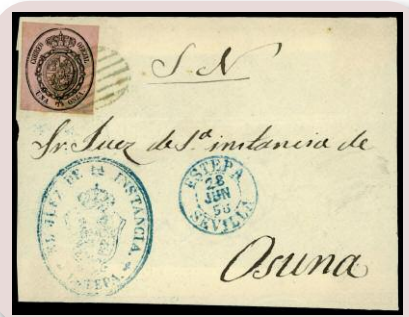 CORREO OFICIAL
UNA ONZA
S. N.
Sr. Juez de 1ª instancia de
EL JUEZ DE 1ª INSTANCIA.
ESTEPA.
ESTEPA
28
JUN
SEVILLA
Osuna